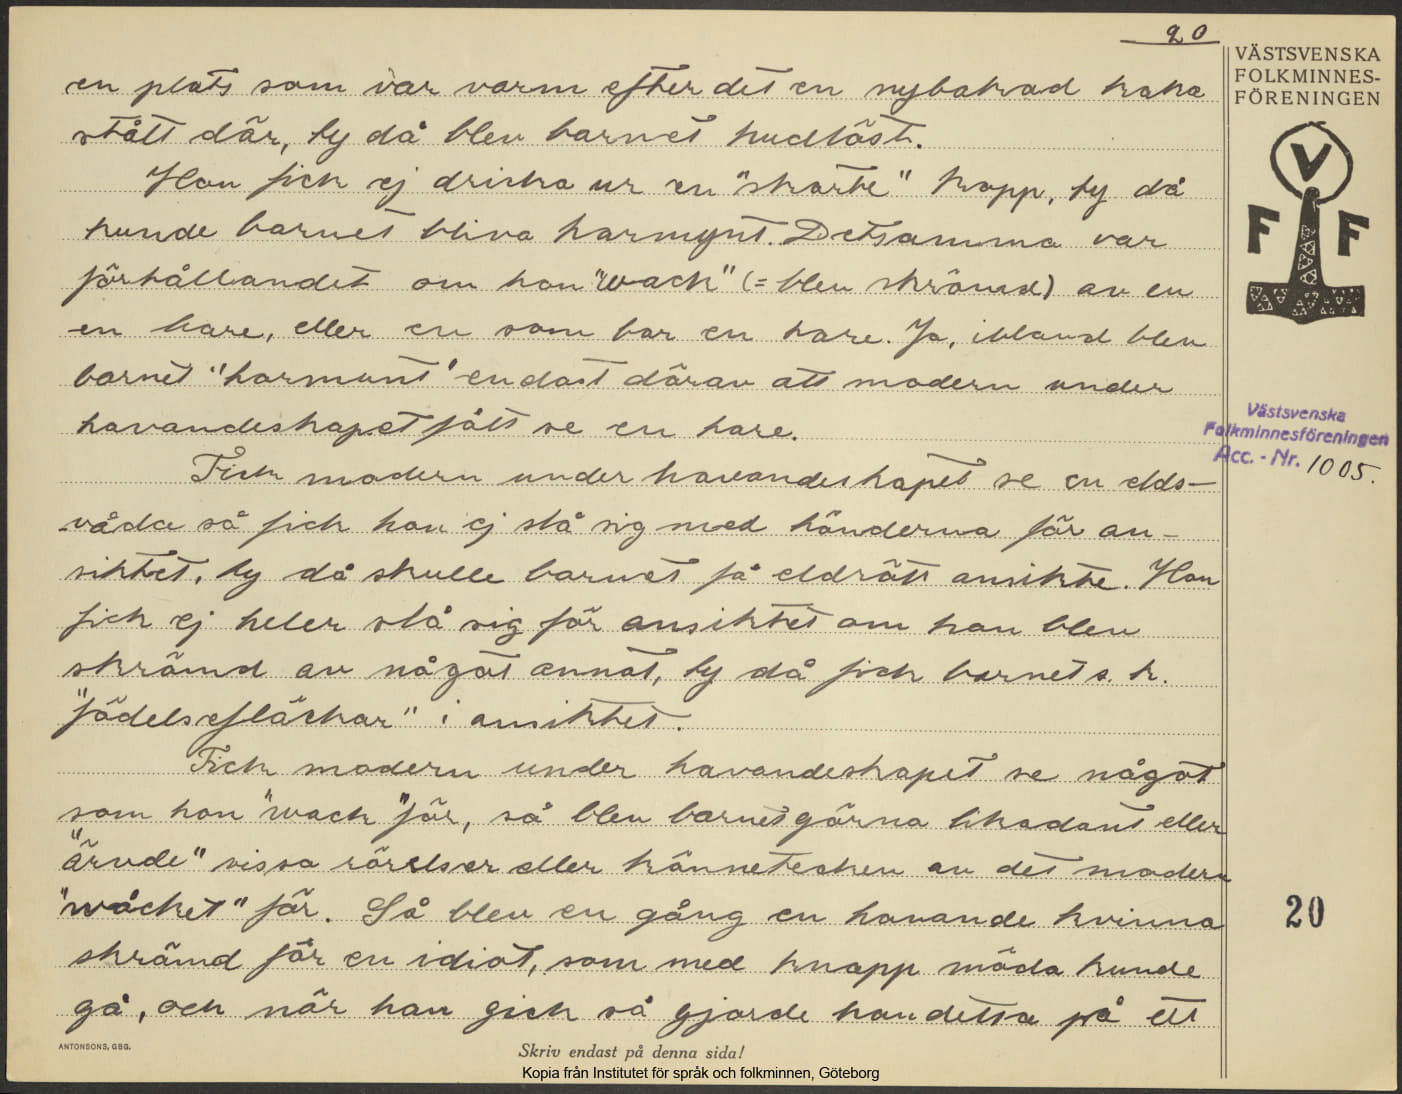 20
VÄSTSVENSKA
FOLKMINNES-
FÖRENINGEN
V
F F
en plats som var varm efter det en nybakad kaka
stått där, ty då blev barnet hudlöst.
Hon fick ej dricka ur en "skarte" kopp, ty då
kunde barnet bliva harmynt. Detsamma var
förhållandet om hon "wack" (= blev skrämd) av en
en hare, eller en som bar en hare. Ja, ibland blev
barnet "harmunt" endast därav att modern under
havandeskapet fått se en hare.
Fick modern under havandeskapet se en elds-
våda så fick hon ej slå sig med händerna för an-
siktet, ty då skulle barnet få eldrött ansikte. Hon
fick ej heler slå sig för ansiktet om hon blev
skrämd av något annat, ty då fick barnet s. k.
"födelsefläckar" i ansiktet.
Fick modern under havandeskapet se något
som hon "wack" för, så blev barnet gärna likadant eller
"ärvde" vissa rörelser eller kännetecken av det modern
"wäcket" för. Så blev en gång en havande kvinna
skrämd för en idiot, som med knapp möda kunde
gå, och när han gick så gjorde han detta på ett
Västsvenska
Folkminnesföreningen
Acc.-Nr. 1005.
20
ANTONSONS, GBG.
Skriv endast på denna sida!
Kopia från Institutet för språk och folkminnen, Göteborg